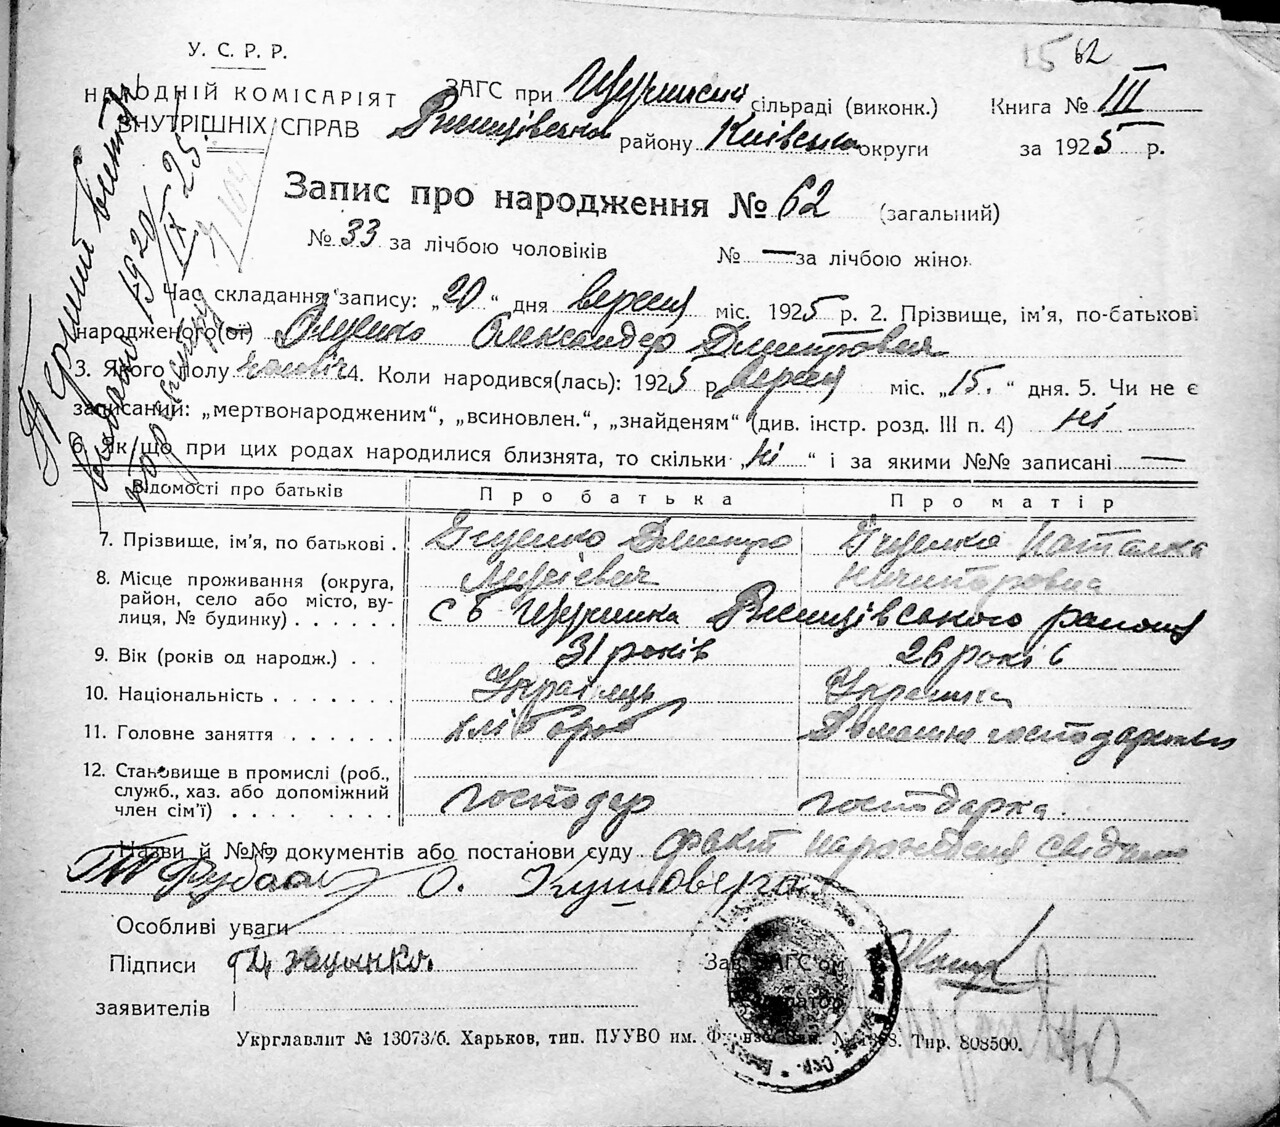 15 62
У. С. Р. Р.
НАРОДНІЙ КОМІСАРІЯТ
ВНУТРІШНІХ СПРАВ
ЗАГС при сільраді (виконк.)
району Київська округи
Книга № III
за 1925 р.
Запис про народження № 62 (загальний)
№ 33 за лічбою чоловіків № — за лічбою жінок
Час складання запису: „20“ дня вересня міс. 1925 р. 2. Прізвище, ім'я, по-батькові
народженого(ої) Олександер Дмитрович
3. Якого полу чоловіч 4. Коли народився(лась): 1925 р. вересня міс. „15.“ дня. 5. Чи не є
записаний: „мертвонародженим“, „всиновлен.“, „знайденям“ (див. інстр. розд. III п. 4) ні
6. Як що при цих родах народилися близнята, то скільки „ні“ і за якими №№ записані —
Відомості про батьків
Про батька
Про матір
7. Прізвище, ім'я, по батькові . Яценко Дмитро Яценко Наталка
8. Місце проживання (округа,
район, село або місто, ву-
лиця, № будинку) . . . . . с Щучинка Ржищівського району
9. Вік (років од народж.) . . 31 років 26 років
10. Національність . . . . . . Українець Українка
11. Головне заняття . . . . . . хлібороб Домашнє господарство
12. Становище в промислі (роб.,
служб., хаз. або допоміжний
член сім'ї) . . . . . . . . . господар господарка.
Назви й №№ документів або постанови суду факт народження
Особливі уваги
Підписи
заявителів
Зав. ЗАГС'ом
Укрглавлит № 13073/б. Харьков, тип. ПУУВО им. Фрунзе. Зак. Тир. 808500.